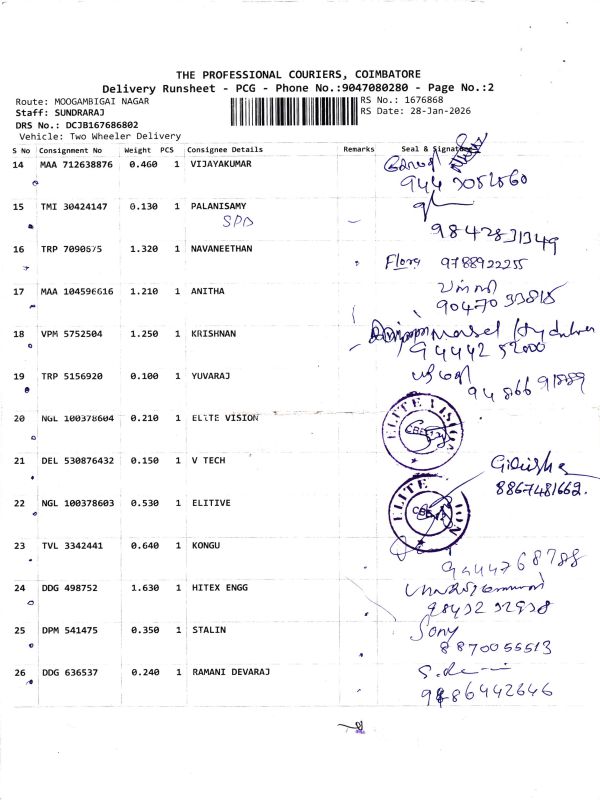 THE PROFESSIONAL COURIERS, COIMBATORE
Delivery Runsheet - PCG - Phone No.:9047080280 - Page No.:2
Route: MOOGAMBIGAI NAGAR RS No.: 1676868
Staff: SUNDRARAJ RS Date: 28-Jan-2026
DRS No.: DCJB167686802
Vehicle: Two Wheeler Delivery
S No Consignment No Weight PCS Consignee Details Remarks Seal & Signature
14 MAA 712638876 0.460 1 VIJAYAKUMAR
15 TMI 30424147 0.130 1 PALANISAMY
SPD
9842831349
16 TRP 7090675 1.320 1 NAVANEETHAN
Flora 9788922255
17 MAA 104596616 1.210 1 ANITHA
90470 33815
18 VPM 5752504 1.250 1 KRISHNAN
94442 52000
19 TRP 5156920 0.100 1 YUVARAJ
20 NGL 100378604 0.210 1 ELITE VISION
ELITE VISION
21 DEL 530876432 0.150 1 V TECH
8867481662.
22 NGL 100378603 0.530 1 ELITIVE
23 TVL 3342441 0.640 1 KONGU
9444768788
24 DDG 498752 1.630 1 HITEX ENGG
25 DPM 541475 0.350 1 STALIN
Sony
8870055513
26 DDG 636537 0.240 1 RAMANI DEVARAJ